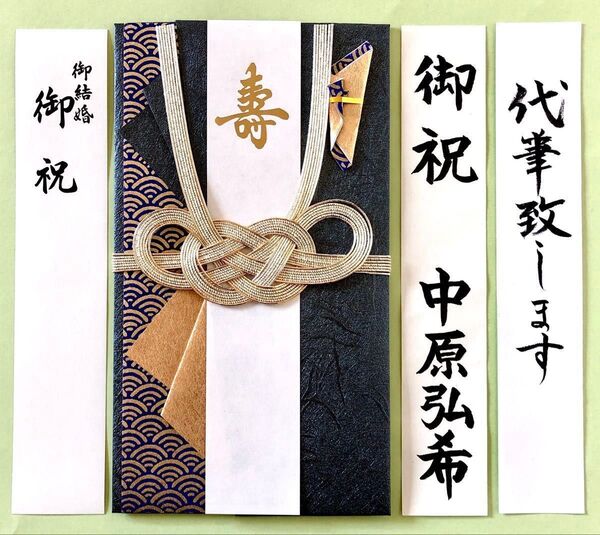 御結婚
御祝
寿
御祝
中原弘希
代筆致します